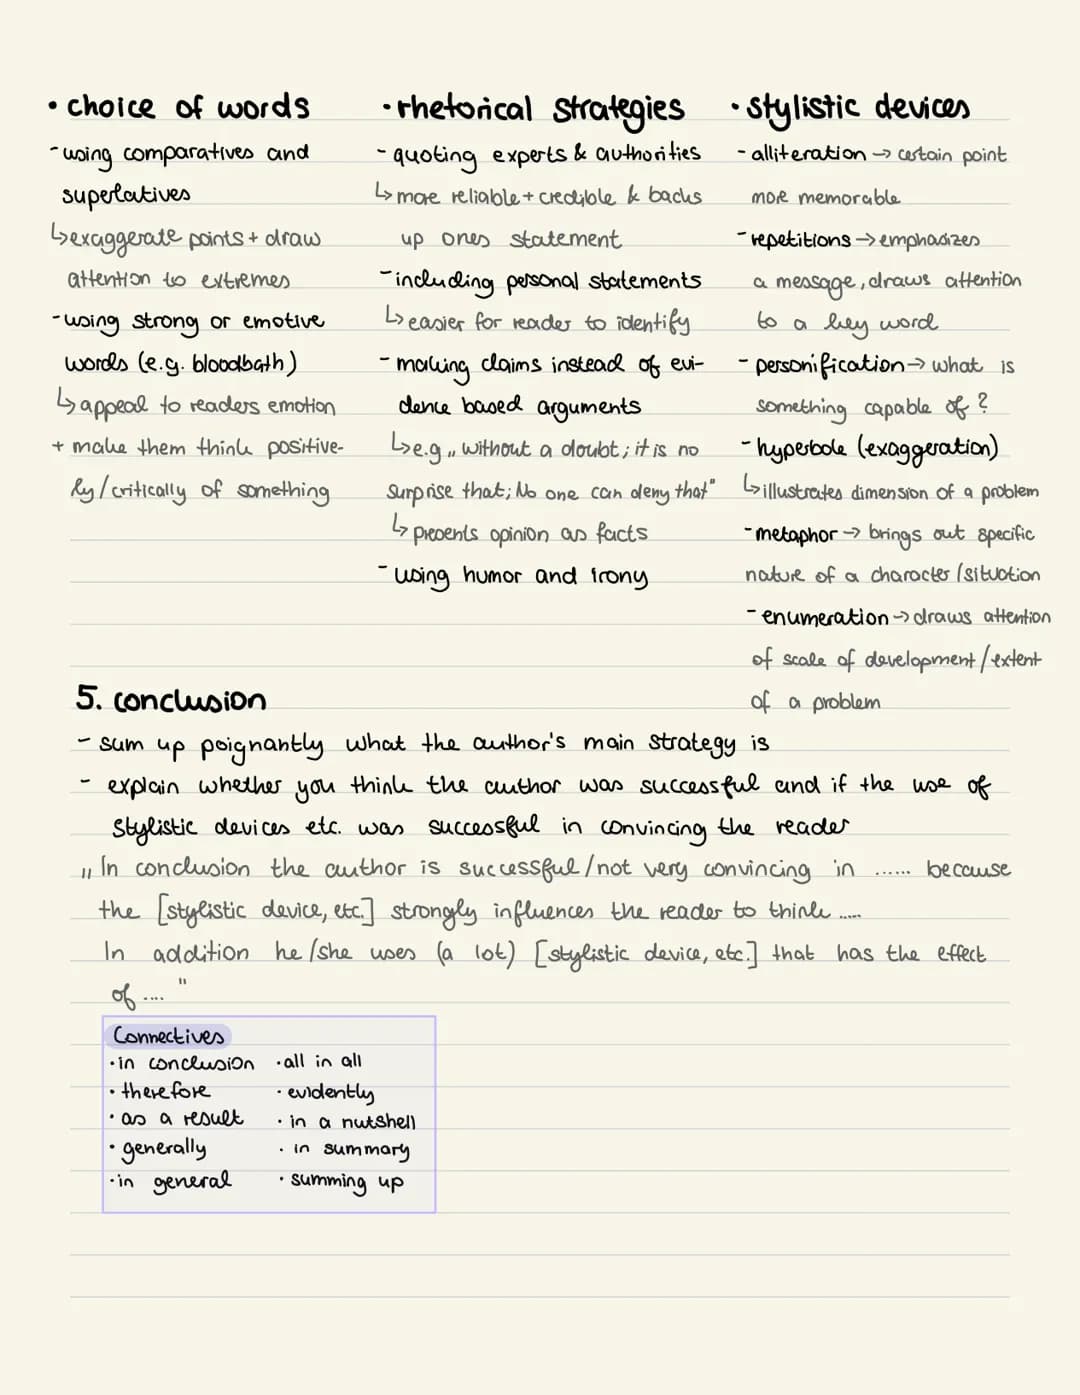 • choice of words
- using comparatives and
superlatives
↳ exaggerate points + draw
attention to extremes
- using strong or emotive
words (e.g. bloodbath)
↳ appeal to readers emotion
+ make them think positive-
ly/critically of something
• rhetorical strategies
- quoting experts & authorities
↳ more reliable + credible & backs
up ones statement
- including personal statements
↳ easier for reader to identify
- making claims instead of evi-
dence based arguments
↳ e.g „ without a doubt; it is no
surprise that; No one can deny that"
↳ presents opinion as facts
- using humor and irony
• stylistic devices
- alliteration → certain point
more memorable
- repetitions → emphasizes
a message, draws attention
to a key word
- personification → what is
something capable of ?
- hyperbole (exaggeration)
↳ illustrates dimension of a problem
- metaphor → brings out specific
nature of a character/situation
- enumeration → draws attention
of scale of development/extent
of a problem
5. conclusion
- sum up poignantly what the author's main strategy is
- explain whether you think the author was successful and if the use of
stylistic devices etc. was successful in convincing the reader
„ In conclusion the author is successful/not very convincing in ...... because
the [stylistic device, etc.] strongly influences the reader to think .....
In addition he/she uses (a lot) [stylistic device, etc.] that has the effect
of .... "
Connectives
• in conclusion
• therefore
• as a result
• generally
• in general
• all in all
• evidently
• in a nutshell
• in summary
• summing up